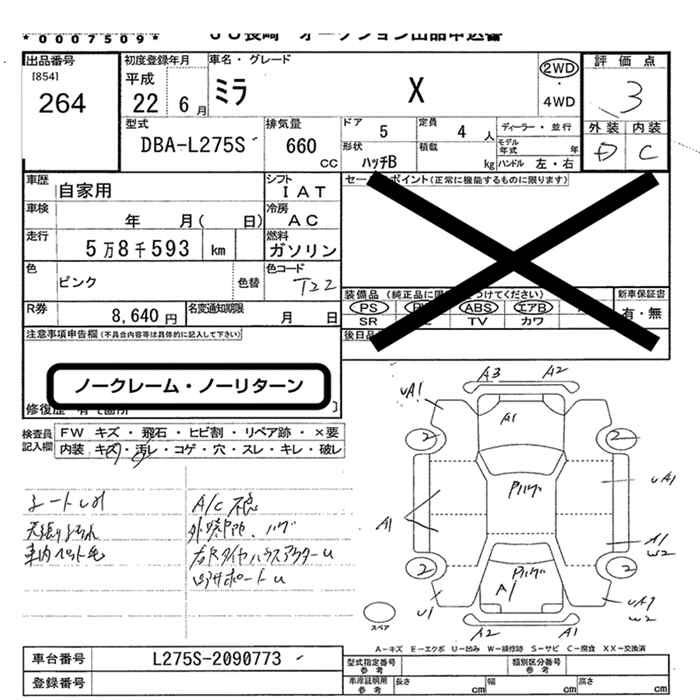 *0007509*
JU長崎 オークション出品申込書
出品番号
[854]
264
初度登録年月
平成
22 6 月
車名・グレード
ミラ X
2WD
・
4WD
評価点
3
外装 内装
D C
型式
DBA-L275S
排気量
660
CC
ドア 5
定員 4 人
ディーラー・並行
モデル年式 年
形状
ハッチB
積載 kg
ハンドル 左・右
車歴
自家用
シフト
IAT
セー ポイント(正常に機能するものに限ります)
車検
年 月( 日)
冷房
AC
走行
5万8千593 km
燃料
ガソリン
色
ピンク
色替
色コード
T22
R券
8,640 円
名変通知期限
月 日
装備品(純正品に限 つけてください)
PS ABS エアB
SR TV カワ
新車保証書
有・無
後日品
注意事項申告欄(不具合内容等は具体的に記入して下さい)
ノークレーム・ノーリターン
修復歴 有 箇所
検査員
記入欄
FW キズ・飛石・ヒビ割・リペア跡・×要
内装 キズ・汚レ・コゲ・穴・スレ・キレ・破レ
天張り
車内ペット毛
A/C
A3 A2
uA1
A1
2 2
Pハゲ
uA1
A1
A1
W2
2 2
Pハゲ
A1
U1
uA2
W2
スペア
A2 A1
A-キズ E-エクボ U-凹み W-補修跡 S-サビ C-腐食 XX-交換済
車台番号
L275S-2090773
登録番号
型式指定番号
参考
類別区分番号
参考
車庫証明用
参考
長さ cm
幅 cm
高さ cm